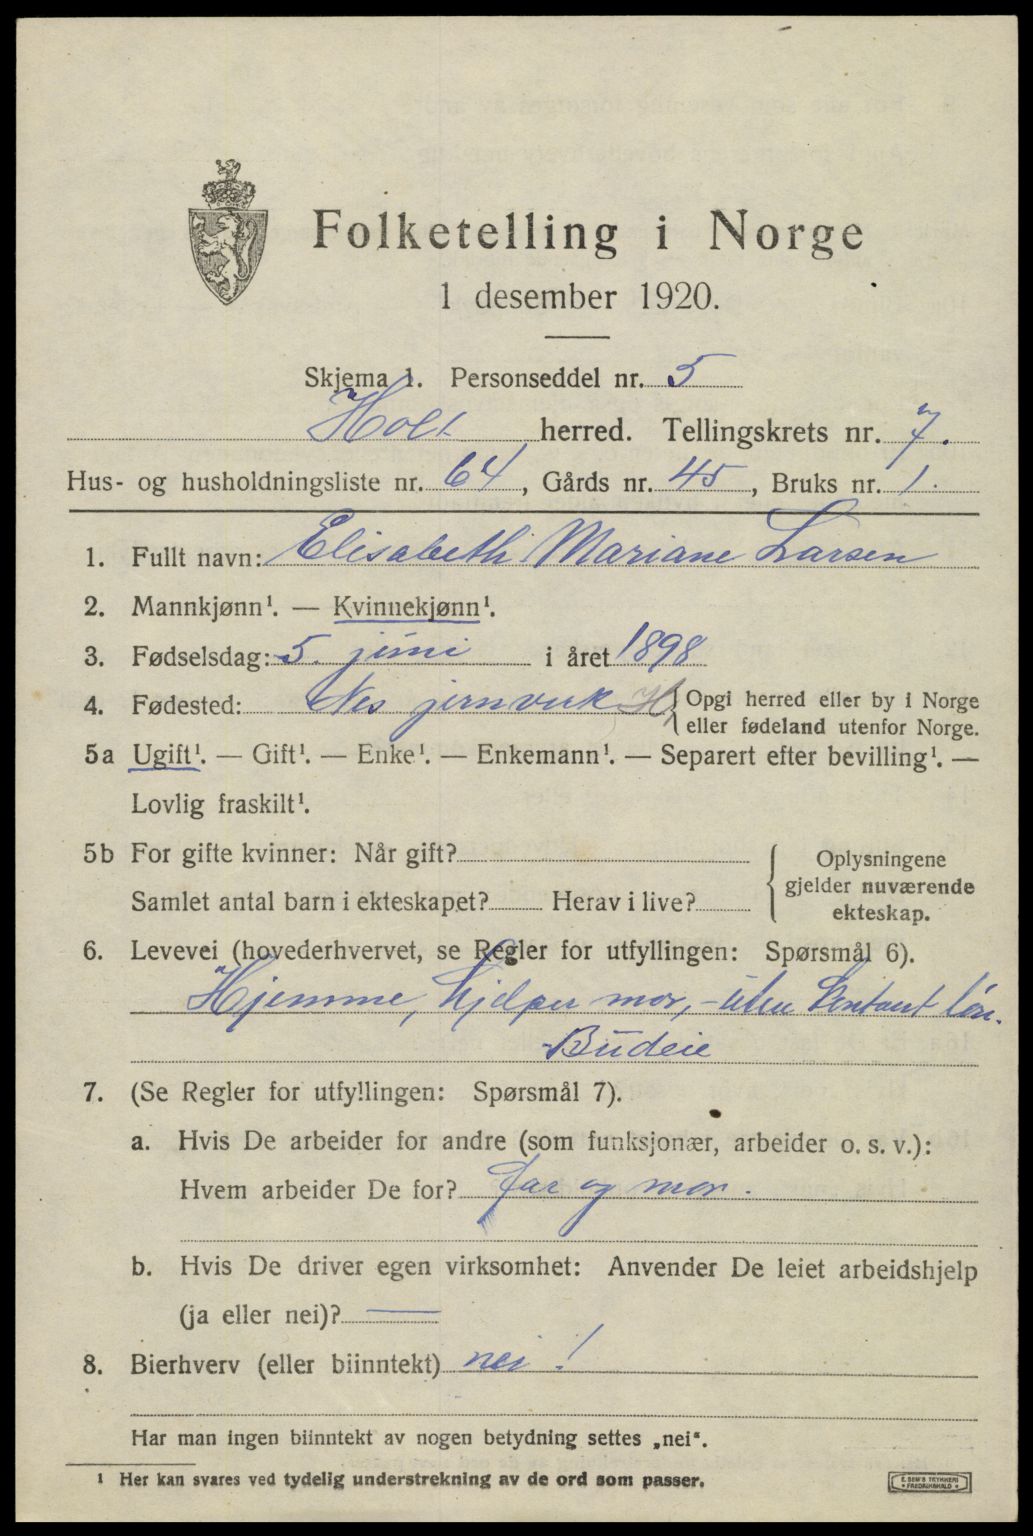 Folketelling i Norge
1 desember 1920.
Skjema 1. Personseddel nr. 5
Holt herred. Tellingskrets nr. 7.
Hus- og husholdningsliste nr. 64, Gårds nr. 45, Bruks nr. 1.
1. Fullt navn: Elisabeth Mariane Larsen
2. Mannkjønn¹. — Kvinnekjønn¹.
3. Fødselsdag: 5. juni i året 1898
4. Fødested: Nes jernverk H. { Opgi herred eller by i Norge
eller fødeland utenfor Norge.
5a Ugift¹. — Gift¹. — Enke¹. — Enkemann¹. — Separert efter bevilling¹. —
Lovlig fraskilt¹.
5b For gifte kvinner: Når gift?
Samlet antal barn i ekteskapet? Herav i live?
{ Oplysningene
gjelder nuværende
ekteskap.
6. Levevei (hovederhvervet, se Regler for utfyllingen: Spørsmål 6).
Hjemme, hjelper mor, - uten kontant løn.
- Budeie
7. (Se Regler for utfyllingen: Spørsmål 7).
a. Hvis De arbeider for andre (som funksjonær, arbeider o. s. v.):
Hvem arbeider De for? far og mor.
b. Hvis De driver egen virksomhet: Anvender De leiet arbeidshjelp
(ja eller nei)? —
8. Bierhverv (eller biinntekt) nei!
Har man ingen biinntekt av nogen betydning settes „nei“.
¹ Her kan svares ved tydelig understrekning av de ord som passer.
E. SEM'S TRYKKERI
• FREDRIKSHALD •